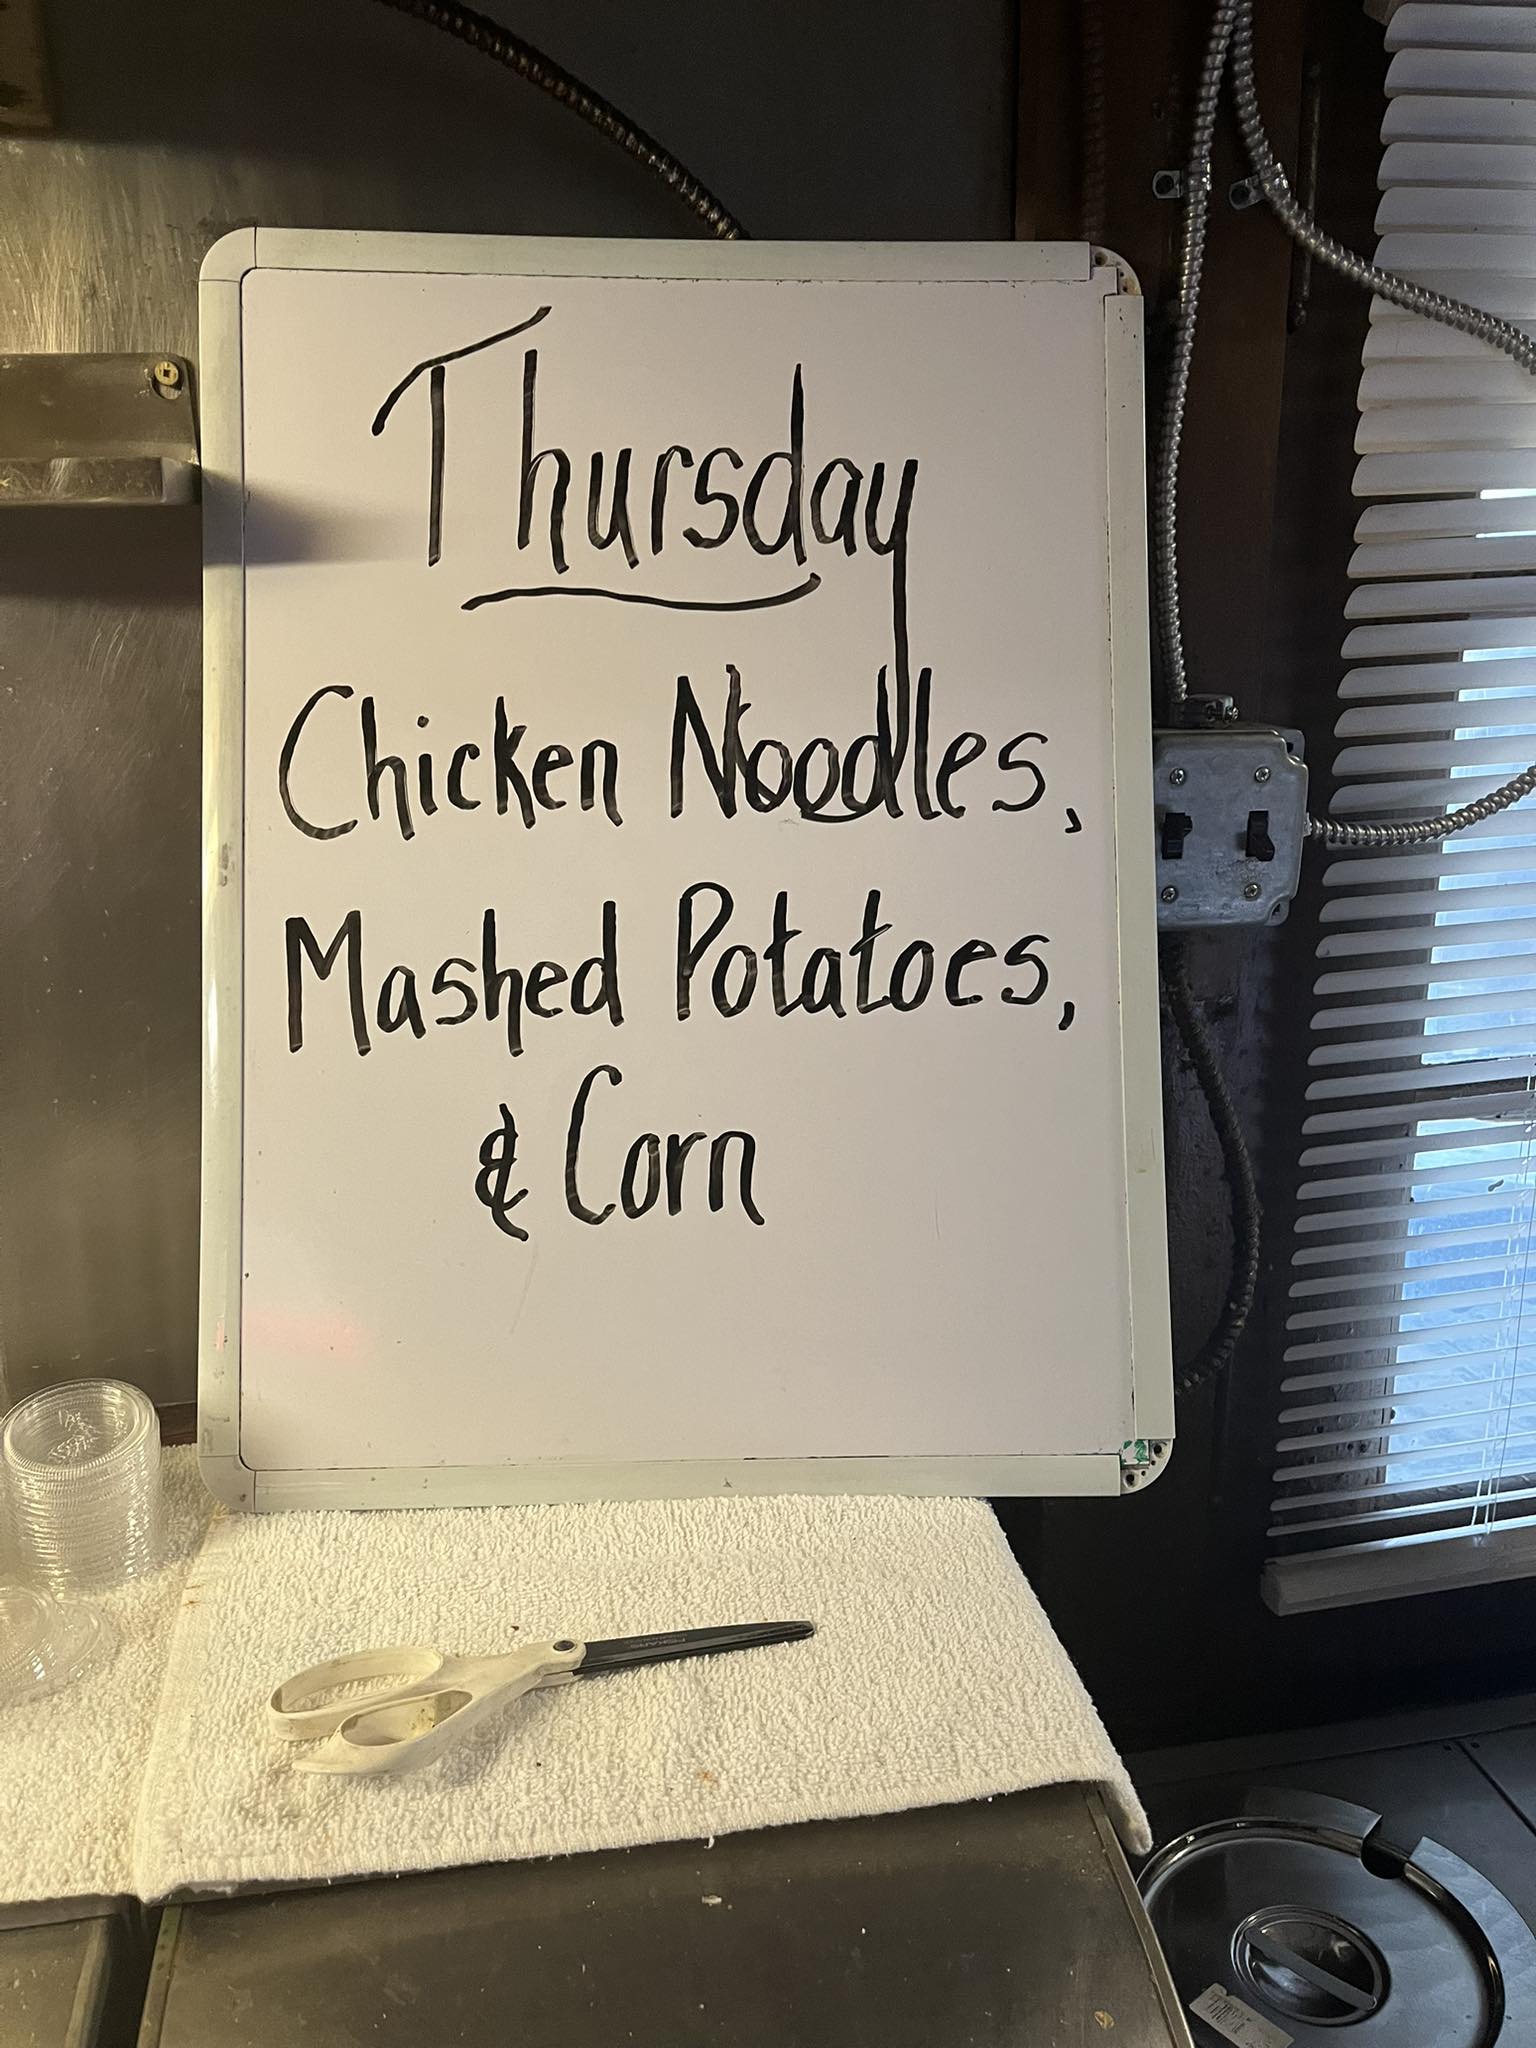 Thursday
Chicken Noodles,
Mashed Potatoes,
& Corn
FISKARS